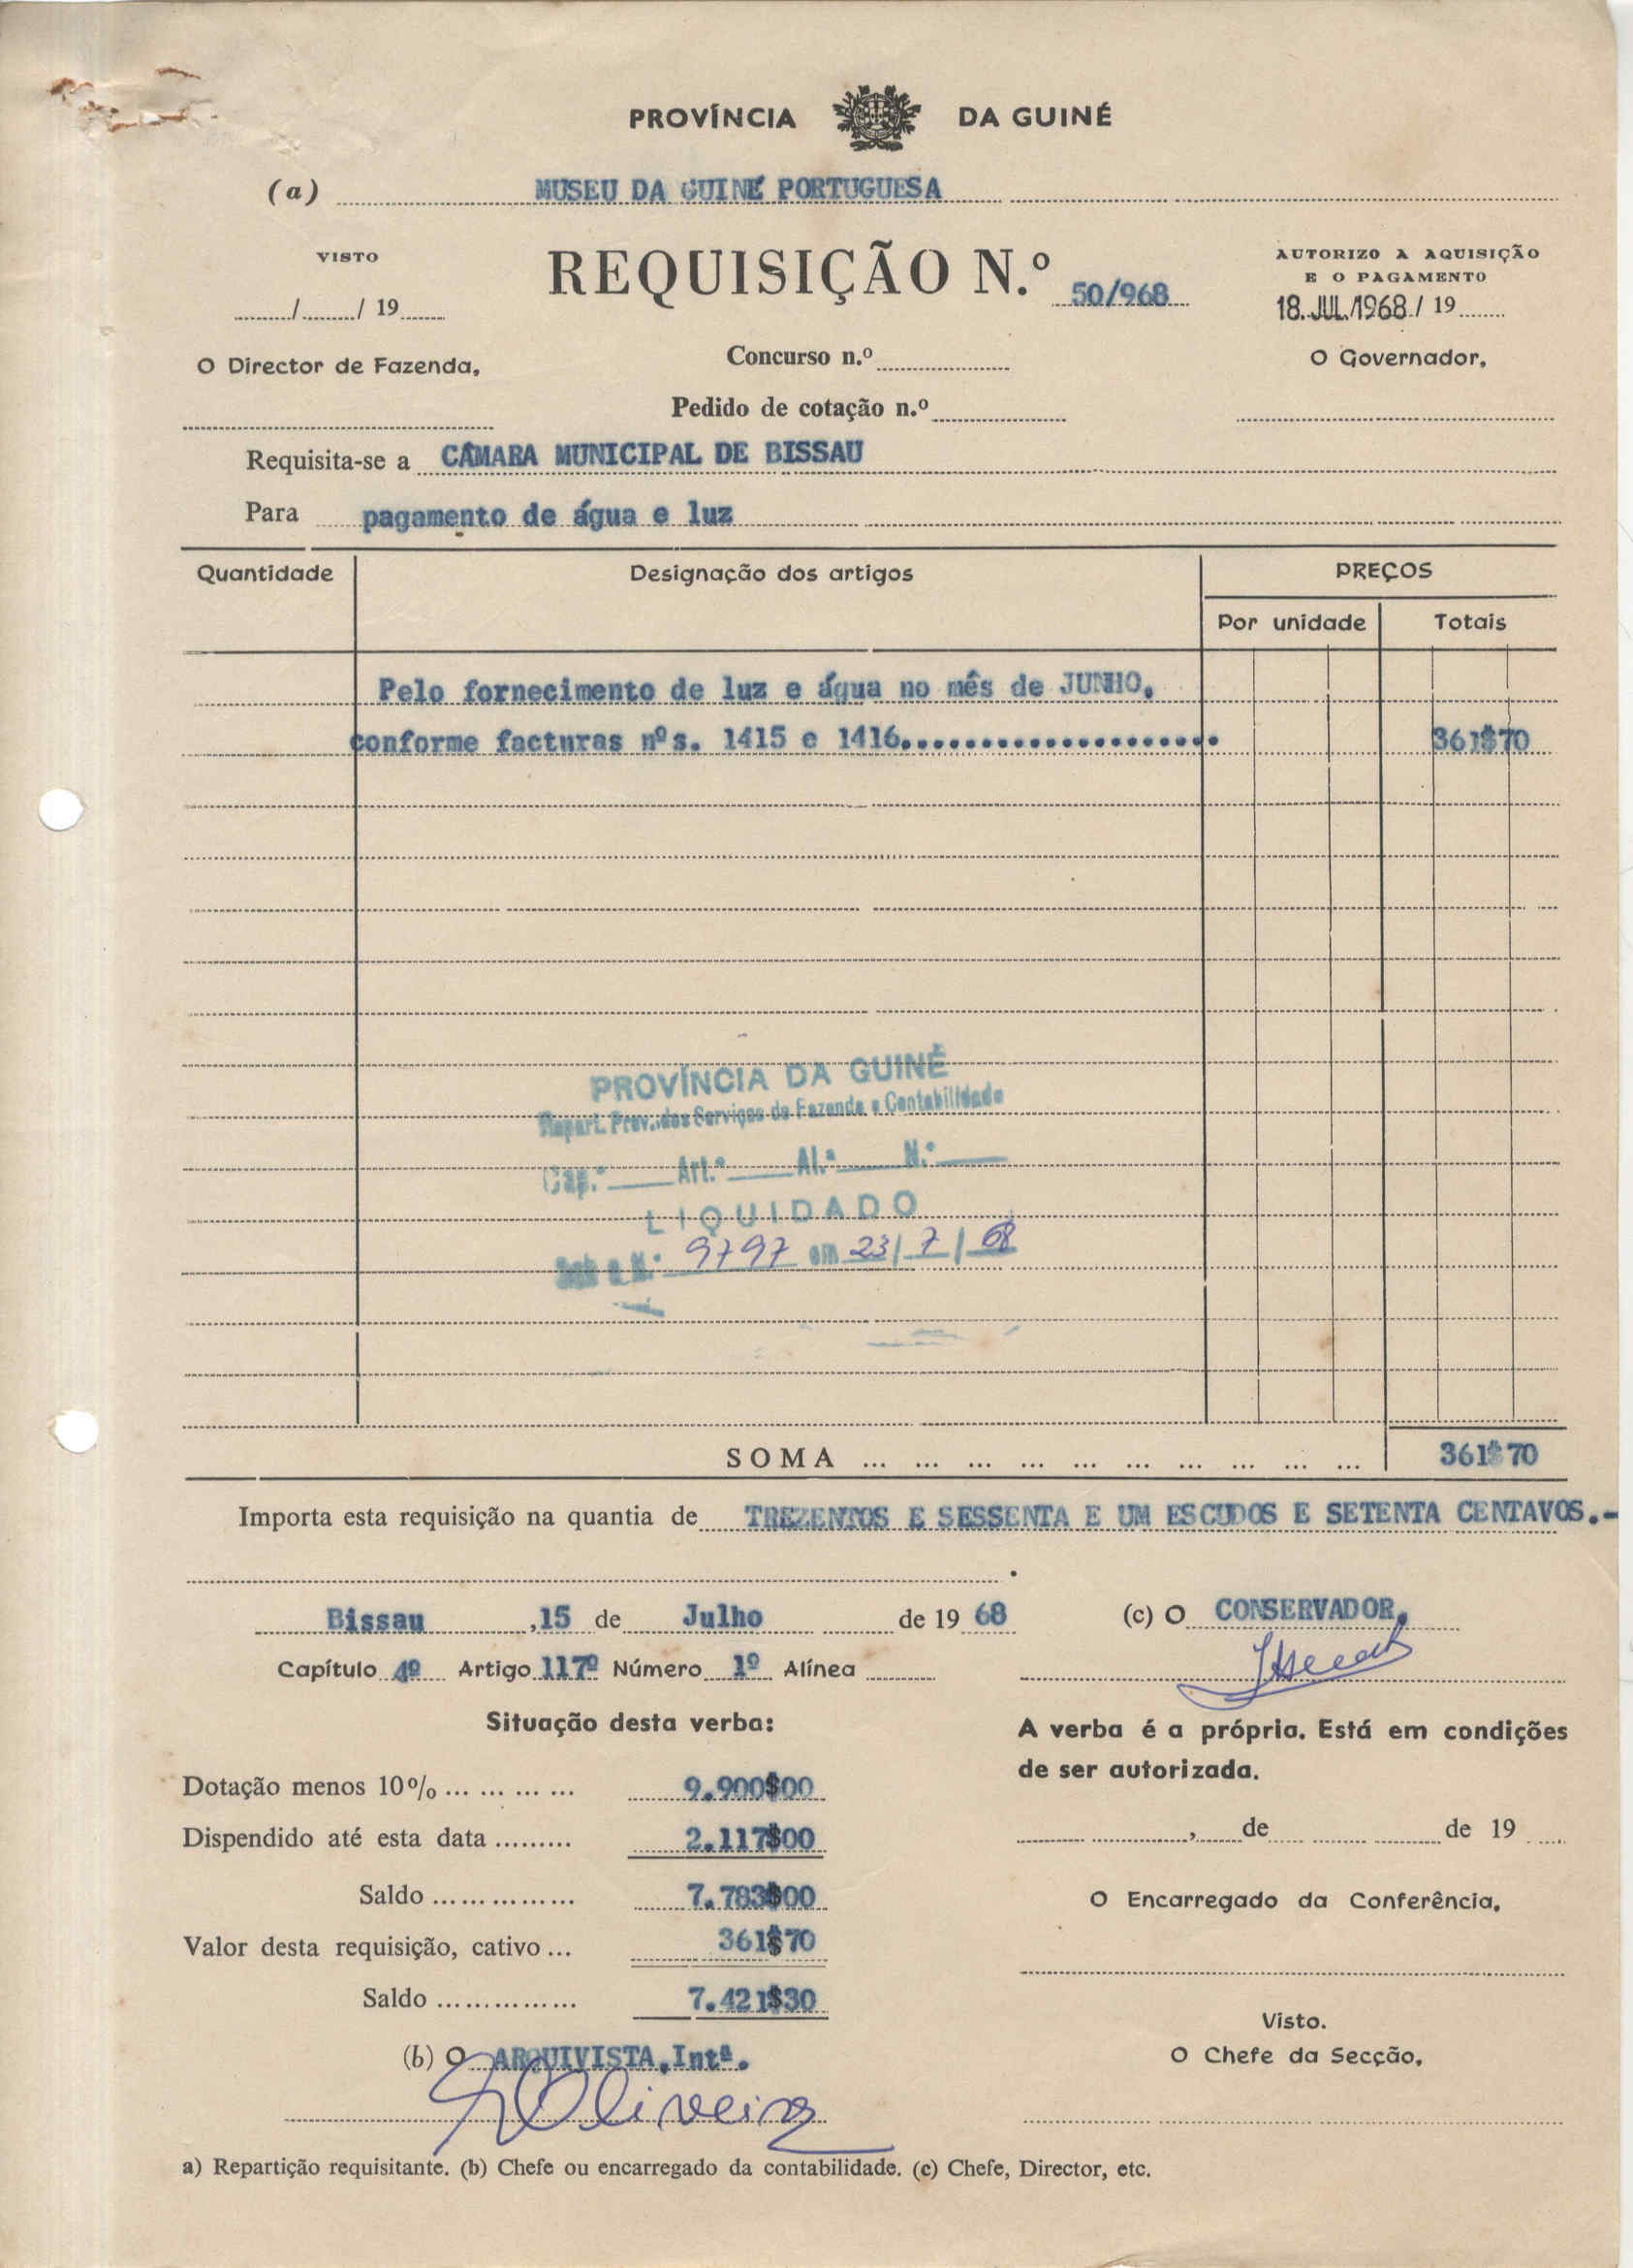 PROVÍNCIA DA GUINÉ
(a) MUSEU DA GUINÉ PORTUGUESA
VISTO
REQUISIÇÃO N.º 50/968
AUTORIZO A AQUISIÇÃO
E O PAGAMENTO
........./........./ 19........
18. JUL. 1968 / 19........
O Director de Fazenda,
Concurso n.º
O Governador,
Pedido de cotação n.º
Requisita-se a CÂMARA MUNICIPAL DE BISSAU
Para pagamento de água e luz
Quantidade Designação dos artigos PREÇOS
Por unidade Totais
Pelo fornecimento de luz e água no mês de JUNHO,
conforme facturas nºs. 1415 e 1416.................... 361$70
PROVÍNCIA DA GUINÉ
Repart. Prov. dos Serviços de Fazenda e Contabilidade
Cap.º ____ Art.º ____ Al.ª ____ N.º ____
LIQUIDADO
Sob o N.º 9797 em 23/7/68
SOMA ... ... ... ... ... ... ... ... ... ... 361$70
Importa esta requisição na quantia de TREZENTOS E SESSENTA E UM ESCUDOS E SETENTA CENTAVOS.-
Bissau, 15 de Julho de 1968
(c) O CONSERVADOR,
Capítulo 4º Artigo 117º Número 1º Alínea
Situação desta verba:
A verba é a própria. Está em condições
de ser autorizada.
Dotação menos 10% ... ... ... ... 9.900$00
Dispendido até esta data ......... 2.117$00
........, ......de ........ de 19 .....
Saldo ............... 7.783$00
O Encarregado da Conferência,
Valor desta requisição, cativo ... 361$70
Saldo ............... 7.421$30
Visto.
(b) O ARQUIVISTA, Intª.
O Chefe da Secção,
Oliveira
a) Repartição requisitante. (b) Chefe ou encarregado da contabilidade. (c) Chefe, Director, etc.